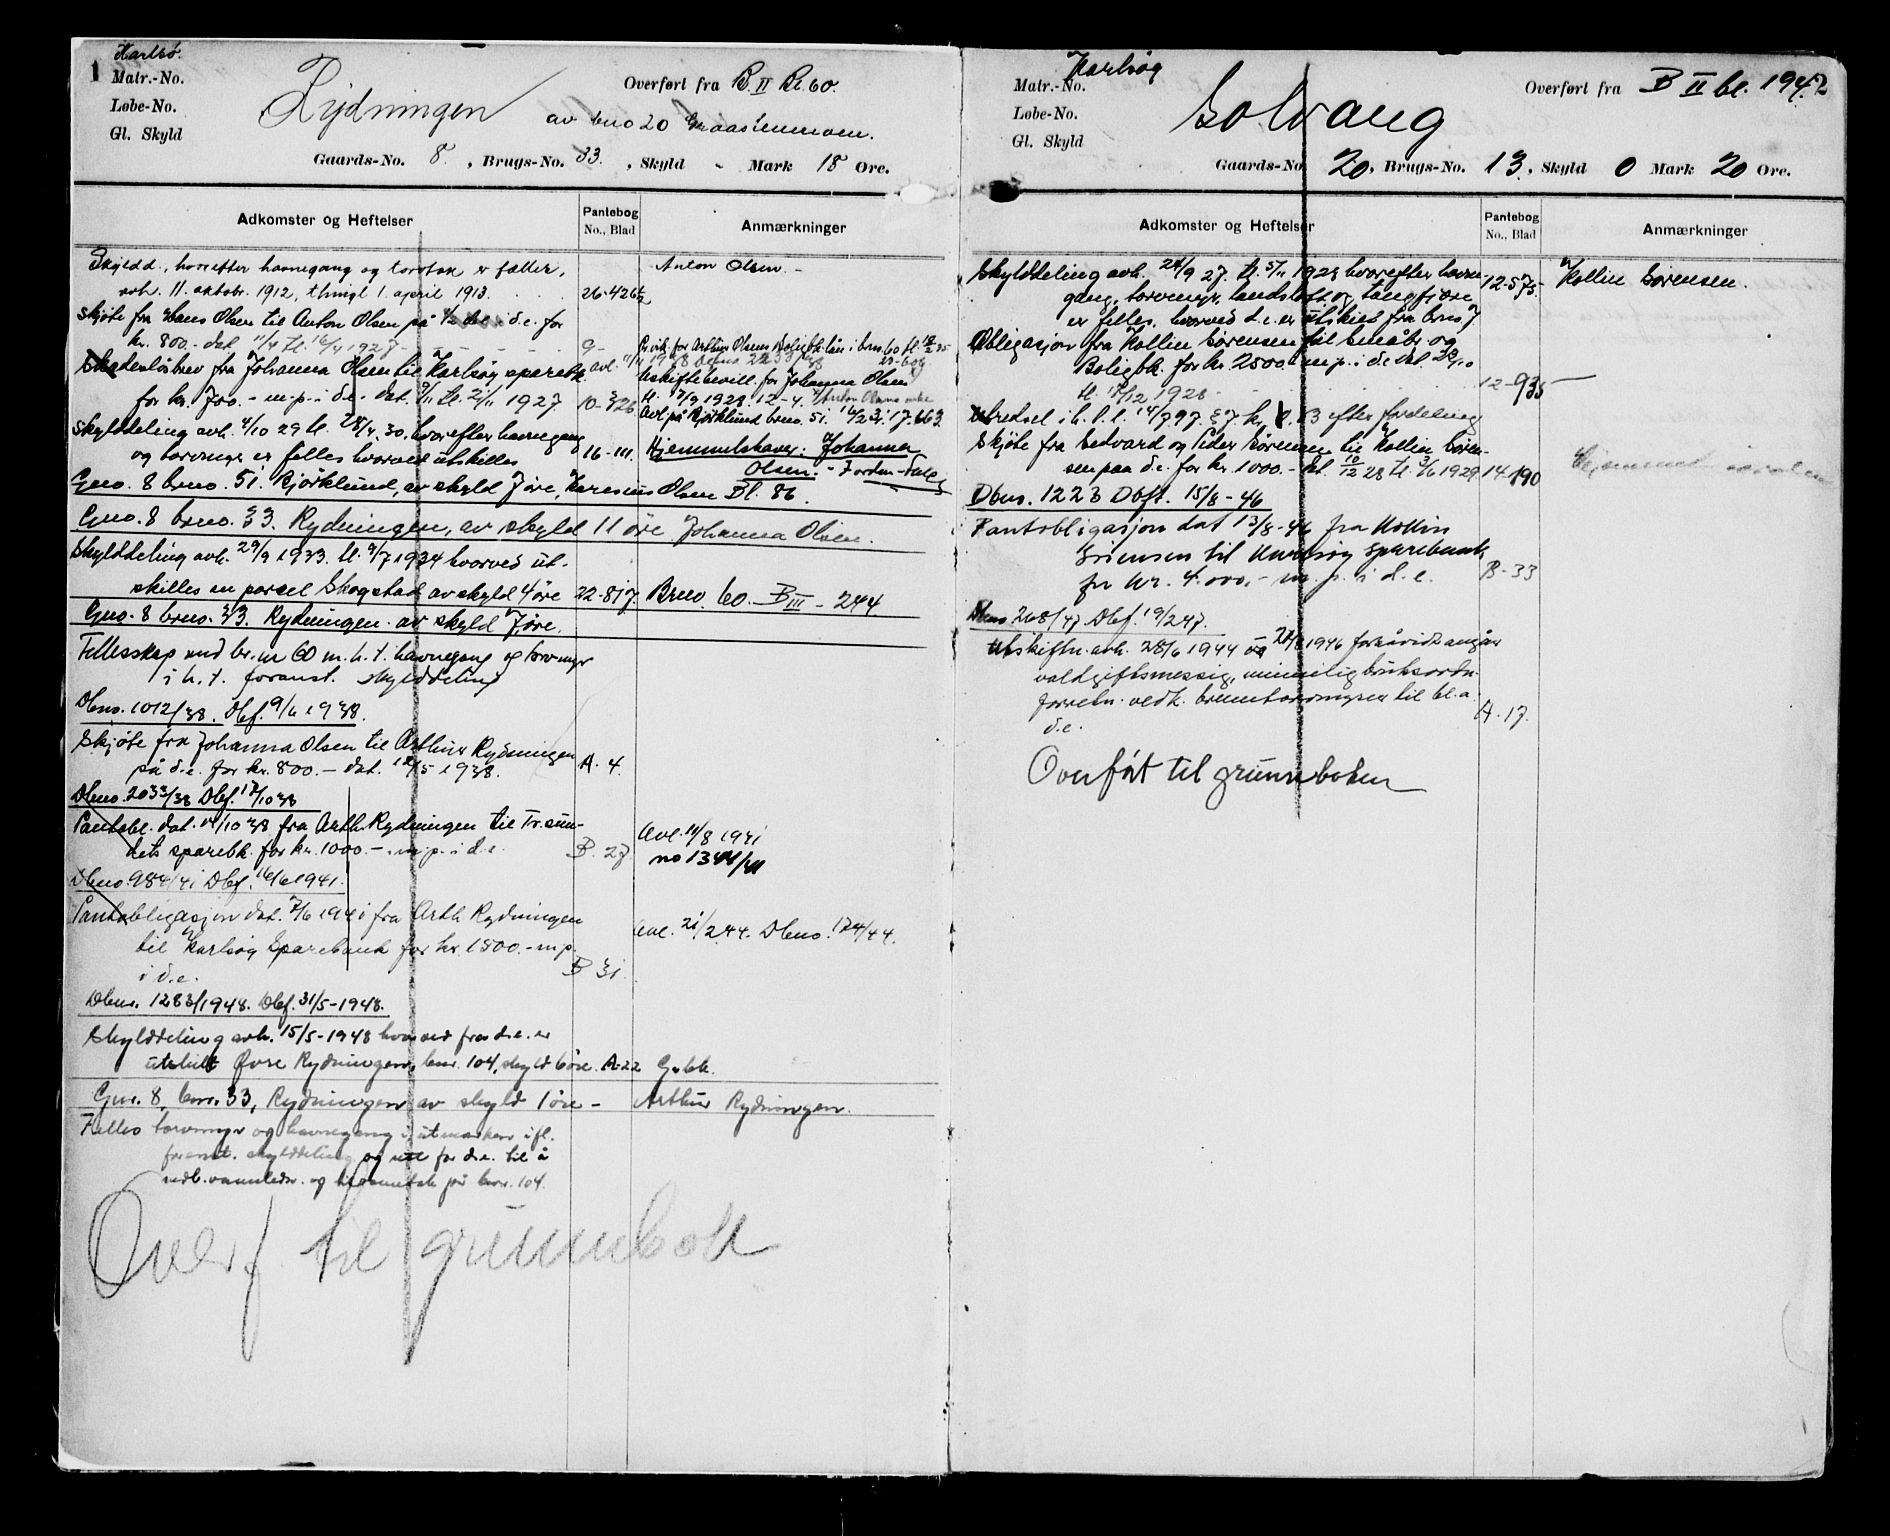 1
Karlsø.
Matr.-No.
Løbe-No.
Gl. Skyld
Rydningen
Overført fra B. II Bl. 60.
av bno 20
Gaards-No. 8, Brugs-No. 33, Skyld - Mark 18 Øre.
Adkomster og Heftelser
Pantebog
No., Blad
Anmærkninger
Skyldd., hvorefter havnegang og torvtak er fælles,
avh. 11. oktobr. 1912, thingl 1. april 1913.
26-426
Anton Olsen. -
Skjøte fra Hans Olsen til Anton Olsen på 1/2 del i d.e. for
kr. 800.- dat 11/4 tl. 16/4 1927
9-
Skadesløsbrev fra Johanna Olsen til Karlsøy sparebk.
for kr. 700.- m.p. i d.e. dat. 9/11 tl. 21/11 1927
10-326
Pr.vik. for Arthur Olsens Boligbk. lån i bno 60
Uskiftebevill. for Johanna Olsen
Skylddeling avh. 4/10 29 tl. 28/4. 30. hvorefter havnegang
og torvmyr er felles hvorved utskilles
16-111.
Hjemmelshaver: Johanna
Olsen. -
Gno. 8 bno. 51. Bjørklund, av skyld 7 øre, Olsen Bl. 86
Gno. 8 bno. 33. Rydningen, av skyld 11 øre Johanna Olsen.
Skylddeling avh. 29/9 1933. tl. 9/7 1934 hvorved ut-
skilles en parsel Skogstad av skyld 4 øre
22-817.
Bno. 60. B III - 244
Gno. 8 bno. 33. Rydningen. av skyld 7 øre.
Fellesskap med br.nr 60 m.h.t. havnegang og torvmyr
i h.t. foranst. skylddeling
Dbno. 1012/38. Dbf. 9/6 1938.
Skjøte fra Johanna Olsen til Arthur Rydningen
på d.e. for kr. 800.- dat. 12/5 1938.
A. 4.
Dbno. 2033/38 Dbf. 17/10 38
Pantobl. dat. 14/10 38 fra Arth. Rydningen til Tr.sun-
dets sparebk. for kr. 1000.- m.p. i d.e.
B. 27
Avl. 11/8 1941
no 1344/41
Dbno. 984/41 Dbf. 16/6 1941.
Pantobligasjon dat. 7/6 1941 fra Arth Rydningen
til Karlsøy Sparebank for kr 1500.- m.p.
i d.e.
B 31
Avl. 21/2 44. Dbno. 174/44.
Dbnr. 1283/1948. Dbf. 31/5-1948.
Skylddeling avh. 15/5-1948 hvorved fra d.e. er
utskilt Øvre Rydningen, bnr. 104, skyld 6 øre.
A-22
G.bk.
Gnr. 8, bnr. 33, Rydningen av skyld 1 øre -
Arthur Rydningen.
Felles torvmyr og havnegang i utmarken ifl.
foranst. skylddeling og rett for d.e. til å
nedl. vannledn. og på bnr. 104.
Overf. til grunnbok
Karlsøy
Matr.-No.
Løbe-No.
Gl. Skyld
Solvang
Overført fra B II bl. 1942
Gaards-No 20, Brugs-No. 13, Skyld 0 Mark 20 Øre.
Adkomster og Heftelser
Pantebog
No., Blad
Anmærkninger
Skylddeling avh. 24/9 27. tl. 5/11 1928 hvorefter havne-
gang, torvmyr, landslott og tangfjære
er felles, hvorved d.e. er utskilt fra bno 7
12-575.
Kollin Sørensen.
Obligasjon fra Kollin Sørensen til Småbr. og
Boligbk. for kr. 2500.- m.p. i d.e.
tl. 17/12 1928
12-935
Utredsel i h.t. l. 14/7 97. § 7 kr. 1.83 efter fordeling
Skjøte fra Sedvard og Peder Sørensen til Kollin Søren-
sen paa d.e. for kr. 1000.- dat. 10/12 28 tl. 3/6 1929
14-190
Dbno. 1223 Dbf. 15/8-46
Pantobligasjon dat 13/8-46 fra Kollin
Sørensen til Karlsøy Sparebank
for kr. 4.000,- m.p. i d.e.
B-33
Dbno 268/47. Dbf. 19/2 47.
Utskiftn. avh. 28/6 1944 og 24/8 1946 forsåvidt angår
voldgiftsmessig, minnelig bruksordn.
forretn. vedk. brenntorvmyren til bl.a.
d.e.
A. 17.
Overført til grunnboken